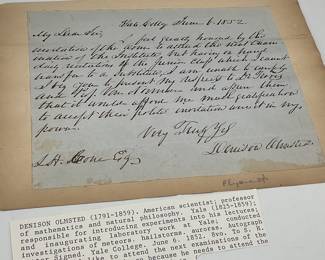 Yale College June 6. 1852.
My Dear Sir,
I feel greatly honored by the
invitation of the to attend the next Exam-
ination of the Institute, but having on hand
daily recitations of the Senior Class which I cannot
transfer to a substitute, I am unable to comply
I beg you to present my respects to Dr.
and Prof. and assure them
that it would afford me much gratification
to accept their polite invitation were it in my
power.
Very Truly Yrs
Denison Olmsted
S. H. Esq.
DENISON OLMSTED (1791-1859). American scientist; professor
of mathematics and natural philosophy, Yale (1825-1859).
responsible for introducing experiments into his lectures,
and inaugurating laboratory work at Yale; conducted
investigations of meteors, hailstorms, auroras. Autograph
Signed. Yale College, June 6, 1852. 8vo. To S. H.
like to attend the next examinations of the
because he needs to attend the